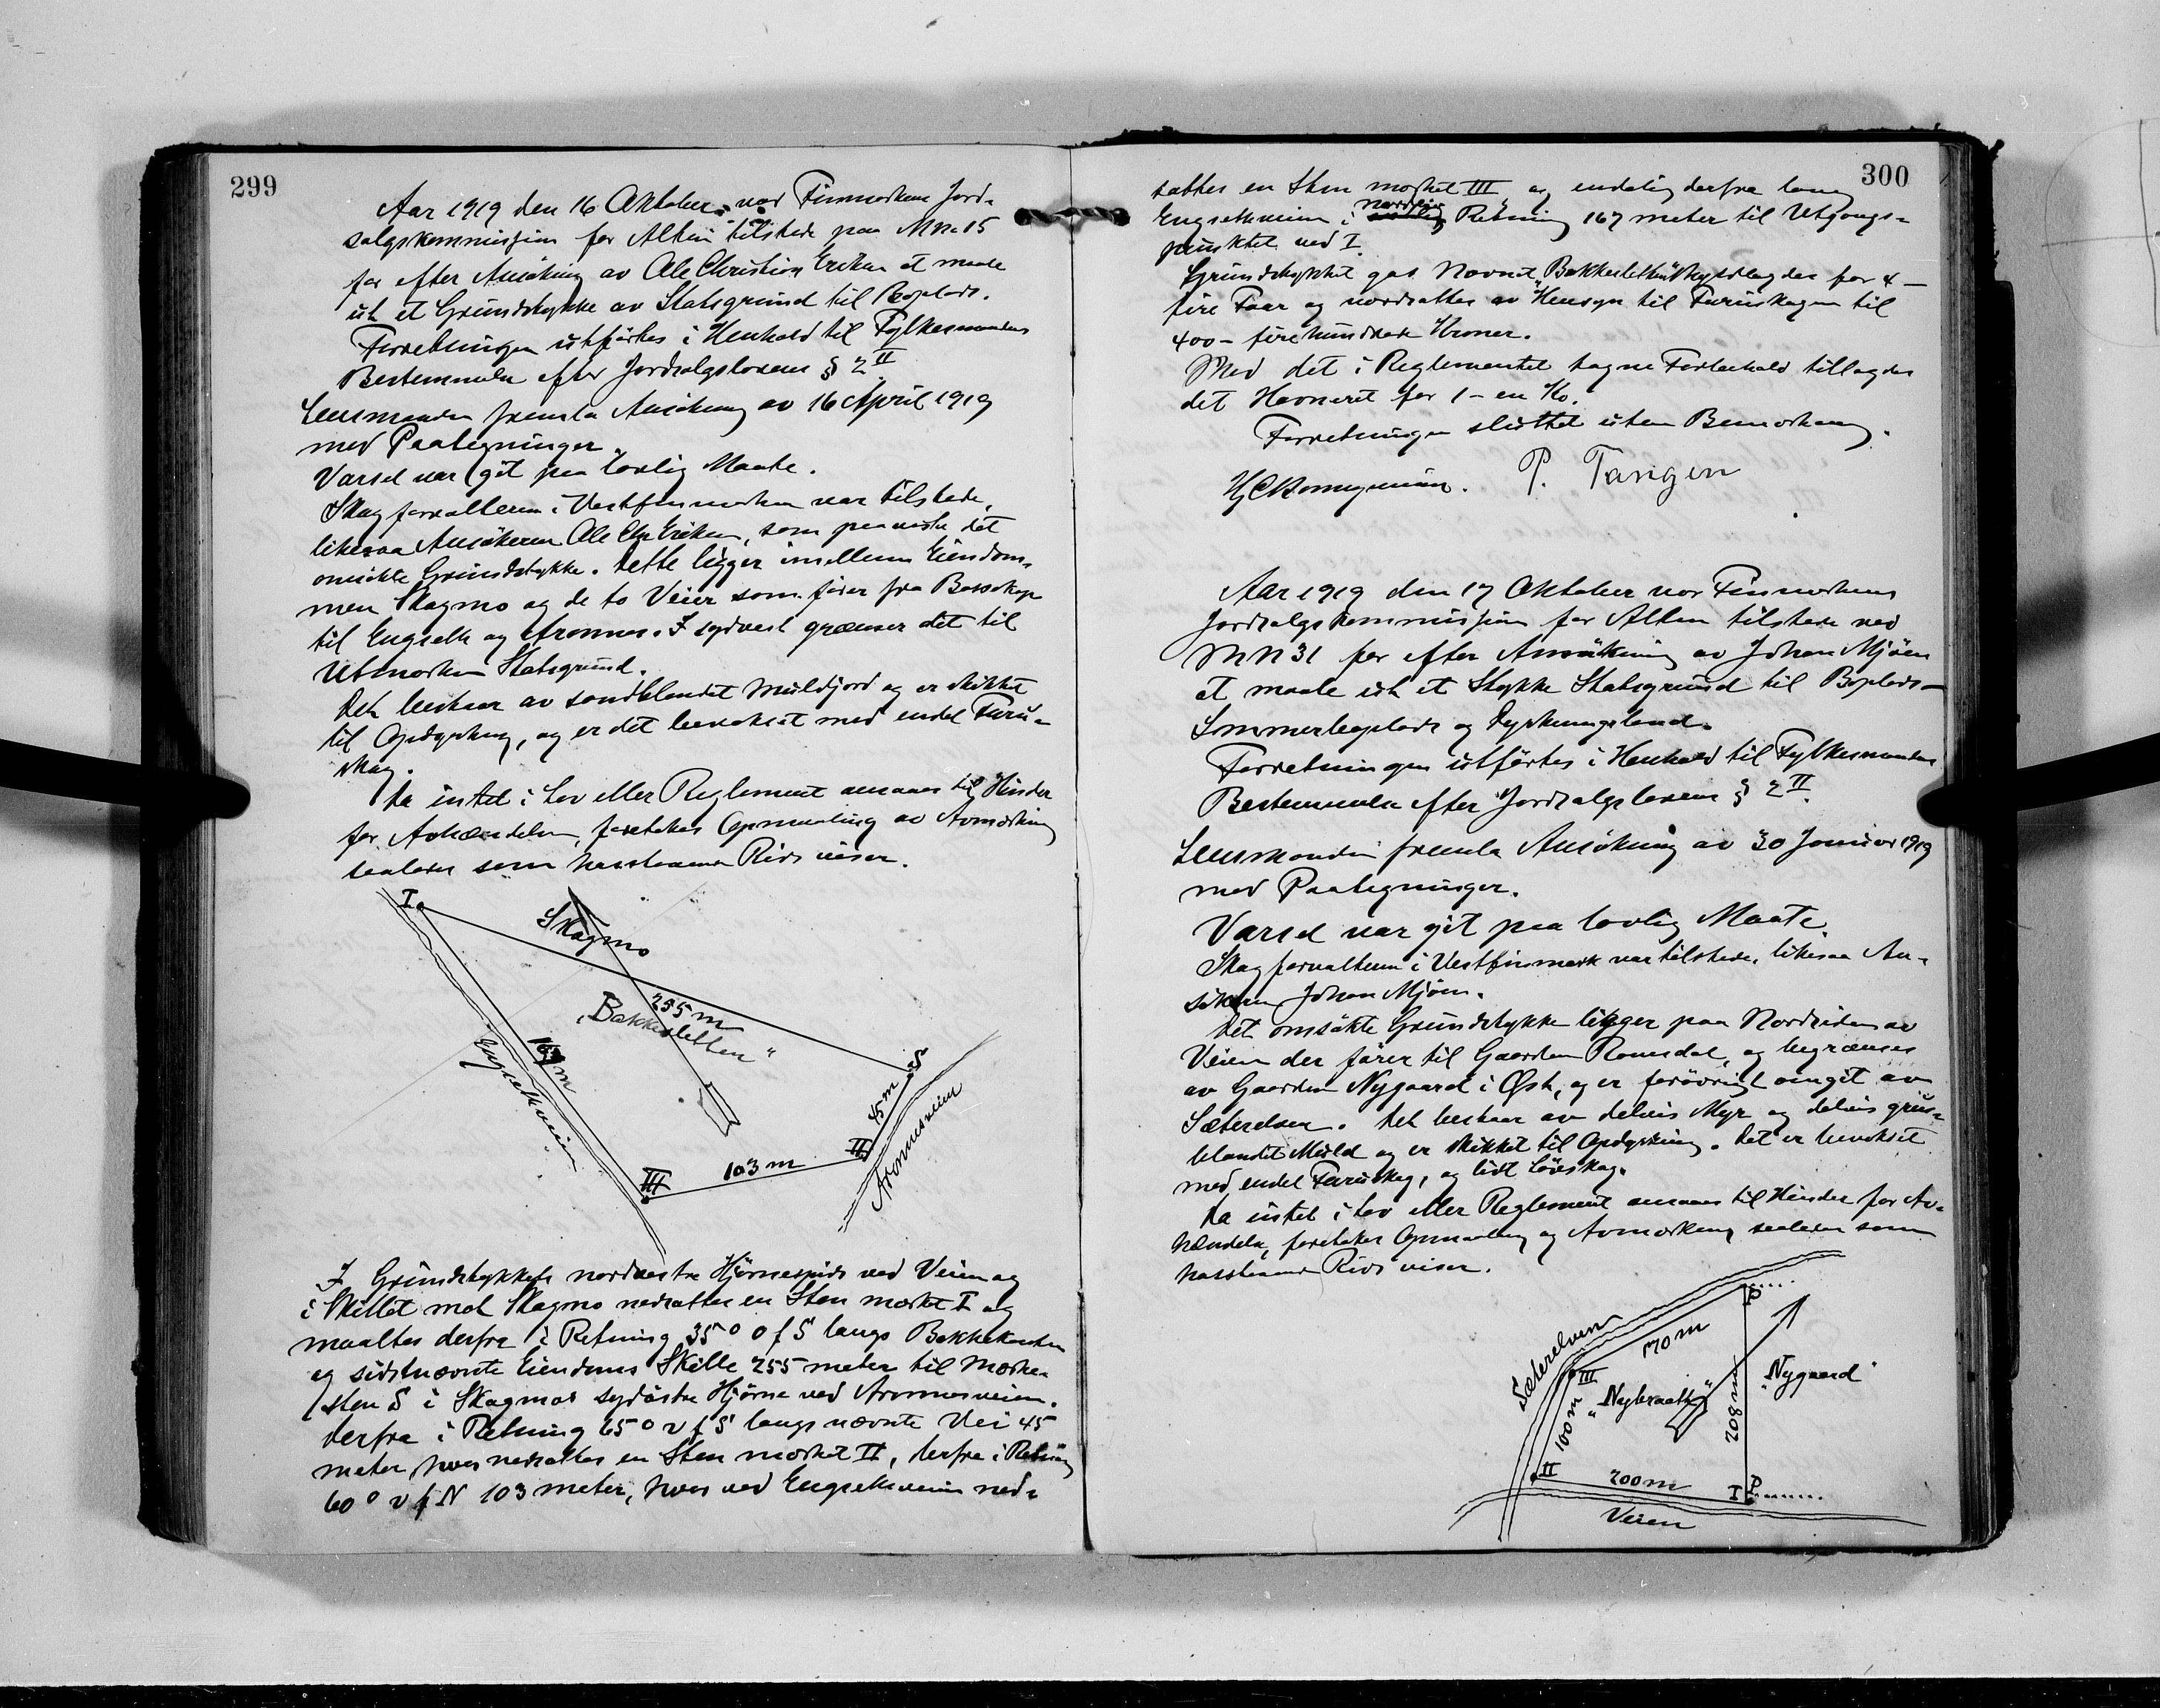 299
Aar 1919 den 16 Oktober var Finmarkens Jord-
salgskommission for Alten tilstede paa M No 15
for efter Ansökning av Ole Christian Eriksen at maale
ut et Grundstykke av Statsgrund til Boplads.
Forretningen utförtes i Henhold til Fylkesmandens
Bestemmelse efter Jordsalgslovens § 2 II
Lensmanden fremla Ansökning av 16 April 1919
med Paategninger.
Varsel var git paa lovlig Maate.
Skogforvalteren i Vestfinmarken var tilstede,
likesaa Ansökeren Ole Chr Eriksen, som paaviste det
omsökte Grundstykke. Dette ligger imellem Eiendom-
men Skogmo og de to Veier som förer fra Bossekop
til Engseth og Aronnes. I sydvest grænser det til
Utmarken Statsgrund.
Det bestaar av sandblandet Muldjord og er skikket
til Opdyrking, og er det bevokset med endel Furu-
skog.
Da intet i Lov eller Reglement ansaaes til Hinder
for Avhændelsen, foretokes Opmaaling av Avmerking
saaledes som hosstaaende Rids viser.
I
Skogmo
255 m
"Bakkesletten"
167 m
Engsethveien
S
45 m
II
Aronnesveien
103 m
III
I Grundstykkets nordvestre Hjörnespids ved Veien og
i Skillet mod Skogmo nedsattes en Sten merket I og
maaltes derfra i Retning 35° o f S langs Bakkekanten
og sidstnævnte Eiendoms Skille 255 meter til Merke-
sten S i Skogmos sydöstre Hjörne ved Aronnesveien.
derfra i Retning 65° v f S langs nævnte Vei 45
meter, hvor nedsattes en Sten merket II, derfra i Retning
60° v f N 103 meter, hvor ved Engsethveien ned-
300
sattes en Sten merket III og endelig derfra langs
Engsethveien i nordlig Retning 167 meter til Utgangs-
punktet ved I.
Grundstykket gas Navnet "Bakkesletten" skyldlagdes for 4 –
fire Faar og værdsattes av Hensyn til Furuskogen til
400 – firehundrede Kroner.
Med det i Reglementet tagne Forbehold tillagdes
det Havneret for 1 – en Ko.
Forretningen sluttet uten Bemerkning.
P. Tangen
Aar 1919 den 17 Oktober var Finmarkens
Jordsalgskommission for Alten tilstede ved
M N 31 for efter Ansökning av Johan Mjöen
at maale ut et Stykke Statsgrund til Boplads –
Sommerboplads og Dyrkningsland.
Forretningen utförtes i Henhold til Fylkesmandens
Bestemmelse efter Jordsalgslovens § 2 II.
Lensmanden fremla Ansökning av 30 Januar 1919
med Paategninger.
Varsel var git paa lovlig Maate.
Skogforvalteren i Vestfinmark var tilstede, likesaa An-
sökeren Johan Mjöen.
Det omsökte Grundstykke ligger paa Nordsiden av
Veien der förer til Gaarden Romsdal, og begrænses
av Gaarden Nygaard i Øst, og er forövrigt omgit av
Sæterelven. Det bestaar av delvis Myr og delvis grus-
blandet Muld og er skikket til Opdyrking. Det er bevokset
med endel Furuskog, og lidt Lövskog.
Da intet i Lov eller Reglement ansaaes til Hinder for Av-
hændelse, foretokes Opmaaling og Avmerking saaledes som
hosstaaende Rids viser.
Sæterelven
70 m
III
"Nybraatt"
"Nygaard"
100 m
208 m
II
200 m
I
P
Veien